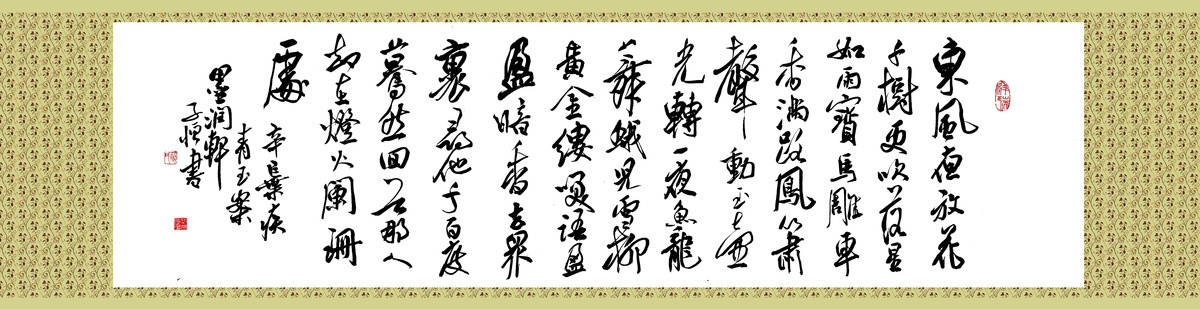 東風夜放花
千樹更吹落星
如雨寶馬雕車
香滿路鳳簫
聲動玉壺
光轉一夜魚龍
舞蛾兒雪柳
黃金縷笑語盈
盈暗香去眾
裏尋他千百度
驀然回首那人
却在燈火闌珊
處
辛棄疾
青玉案
墨潤軒
子書